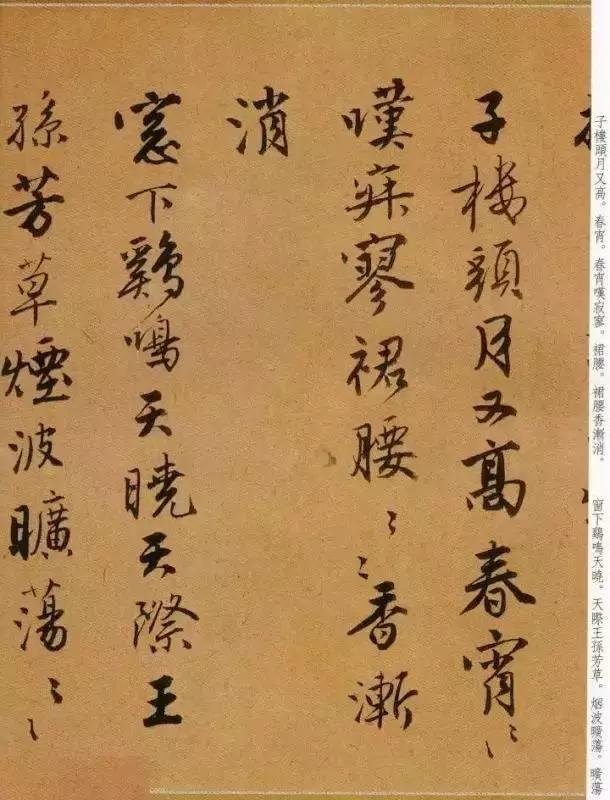 子樓頭月又高春宵〻
嘆寂寥裙腰〻〻香漸
消
窓下鷄鳴天曉天際王
孫芳草煙波曠蕩〻〻
子樓頭月又高。春宵。春宵嘆寂寥。裙腰。裙腰香漸消。
窗下鷄鳴天曉。天際王孫芳草。烟波曠蕩。曠蕩